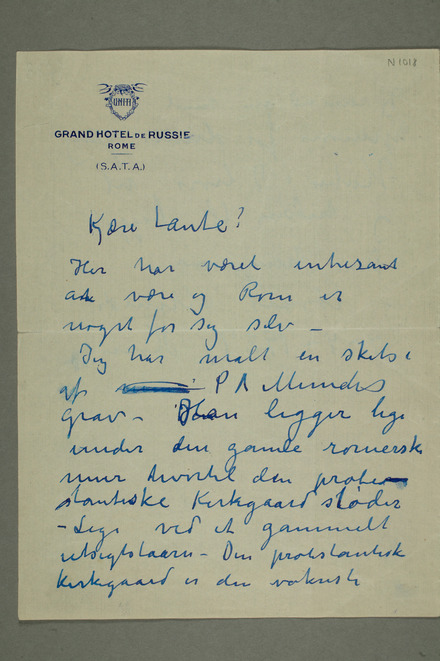 N 1018
UNITI
GRAND HOTEL DE RUSSIE
ROME
(S.A.T.A.)
Kjære Tante!
Her har været interesant
at være og Rom er
noget for sig selv –
Jeg har malt en skitse
af P A Munchs
grav – Han ligger lige
under den gamle romersk
mur hvortil den prote
stantiske Kirkegaard støder
– Lige ved et gammelt
udsigtstaarn – Den protestantiske
Kirkegaard er den vakreste